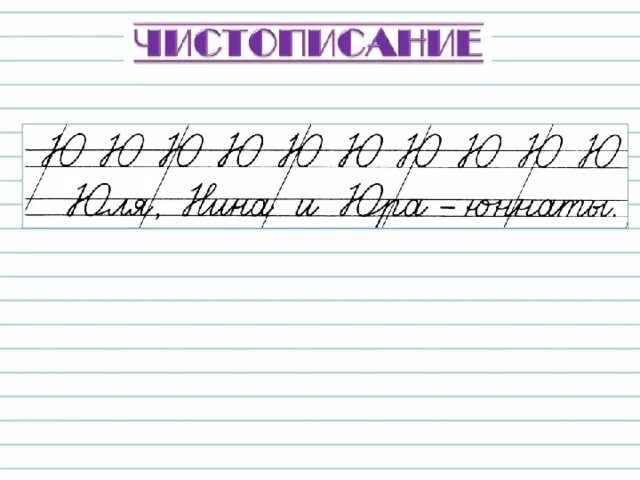 ЧИСТОПИСАНИЕ
Ю Ю Ю Ю Ю Ю Ю Ю Ю Ю
Юля, Нина и Юра – юннаты.